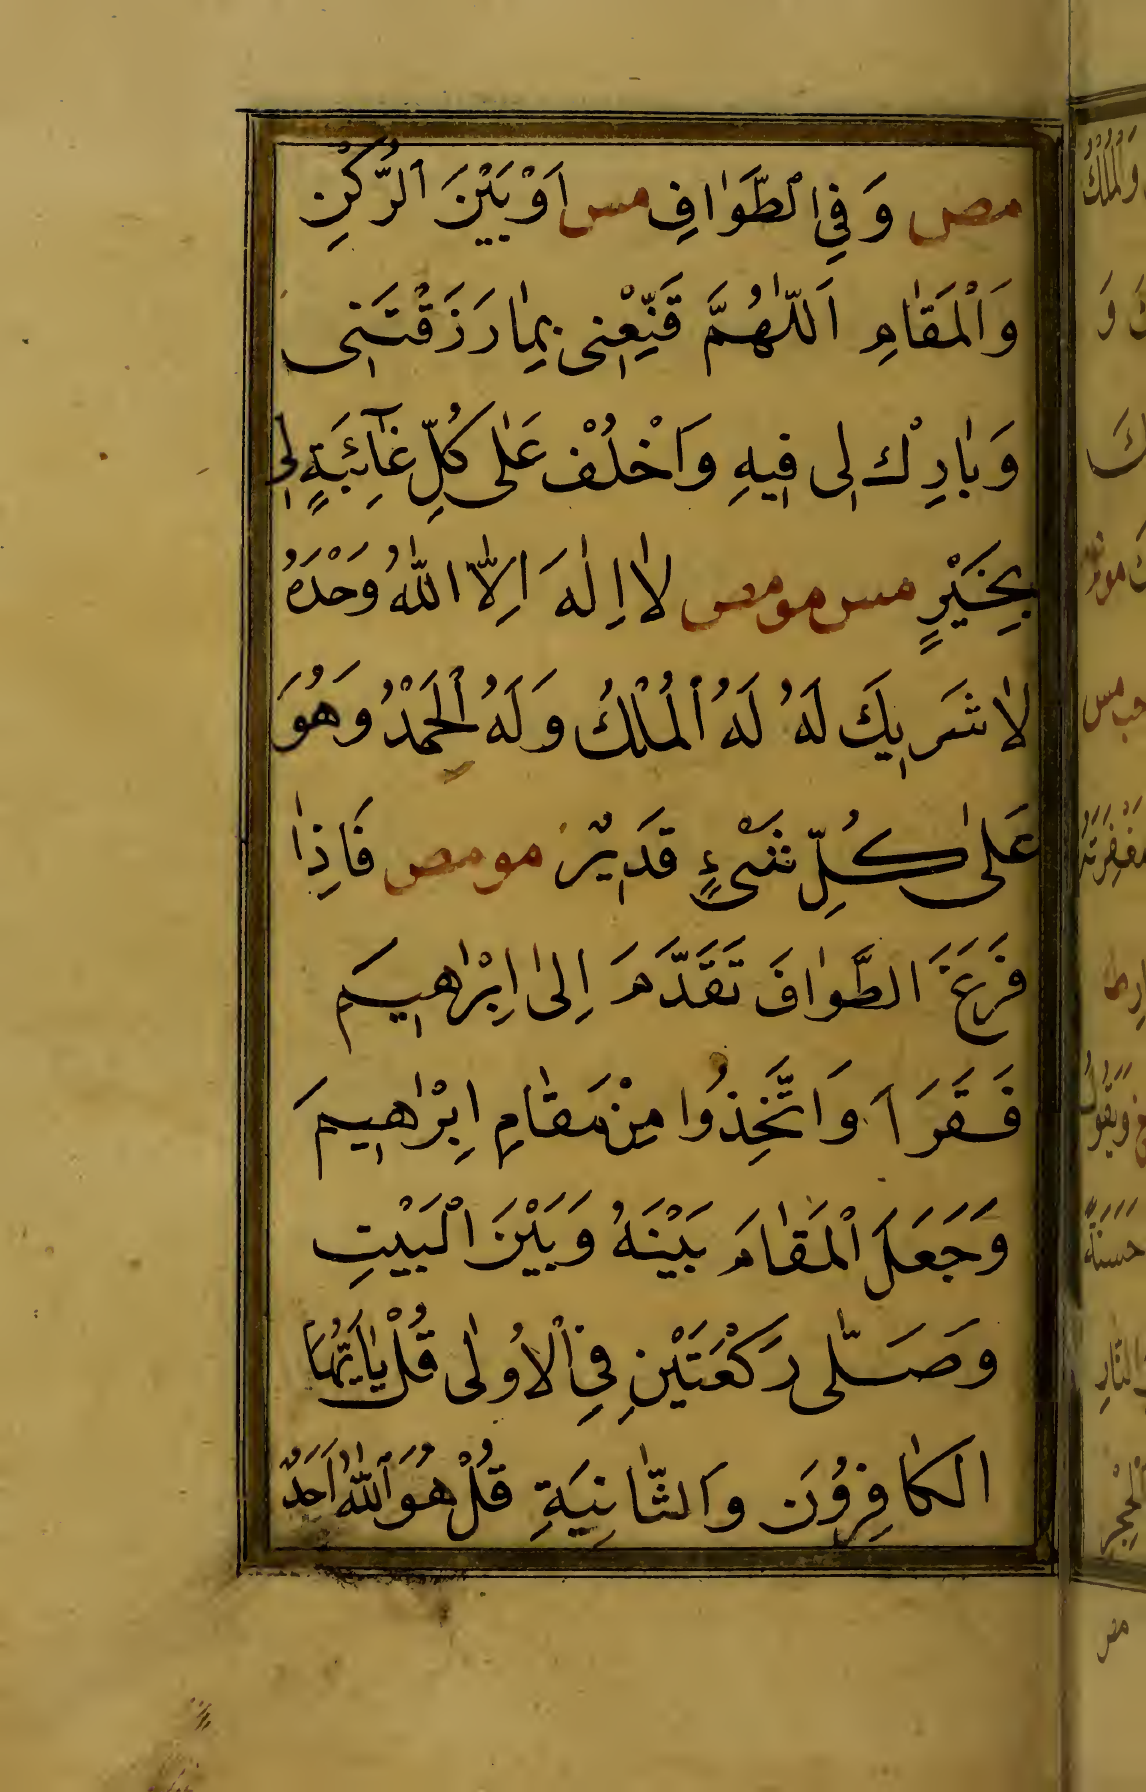 مص وَفِي الطَّوَافِ مس اَوْ بَيْنَ الرُّكْنِ
وَالْمَقَامِ اَللّٰهُمَّ قَنِّعْنِى بِمَا رَزَقْتَنِى
وَبَارِكْ لِى فِيهِ وَاَخْلُفْ عَلٰى كُلِّ غَآئِبَةٍ لِى
بِخَيْرٍ مس مو مص لَا اِلٰهَ اِلَّا اللّٰهُ وَحْدَهُ
لَا شَرِيكَ لَهُ لَهُ الْمُلْكُ وَلَهُ الْحَمْدُ وَهُوَ
عَلٰى كُلِّ شَىْءٍ قَدِيرٌ مو مص فَاِذَا
فَرَغَ الطَّوَافَ تَقَدَّمَ اِلٰى اِبْرٰهِيمَ
فَقَرَاَ وَاتَّخِذُوا مِنْ مَقَامِ اِبْرٰهِيمَ
وَجَعَلَ الْمَقَامَ بَيْنَهُ وَبَيْنَ الْبَيْتِ
وَصَلّٰى رَكْعَتَيْنِ فِي الْاُولٰى قُلْ يٰاَيُّهَا
الْكَافِرُونَ وَالثَّانِيَةِ قُلْ هُوَ اللّٰهُ اَحَدٌ